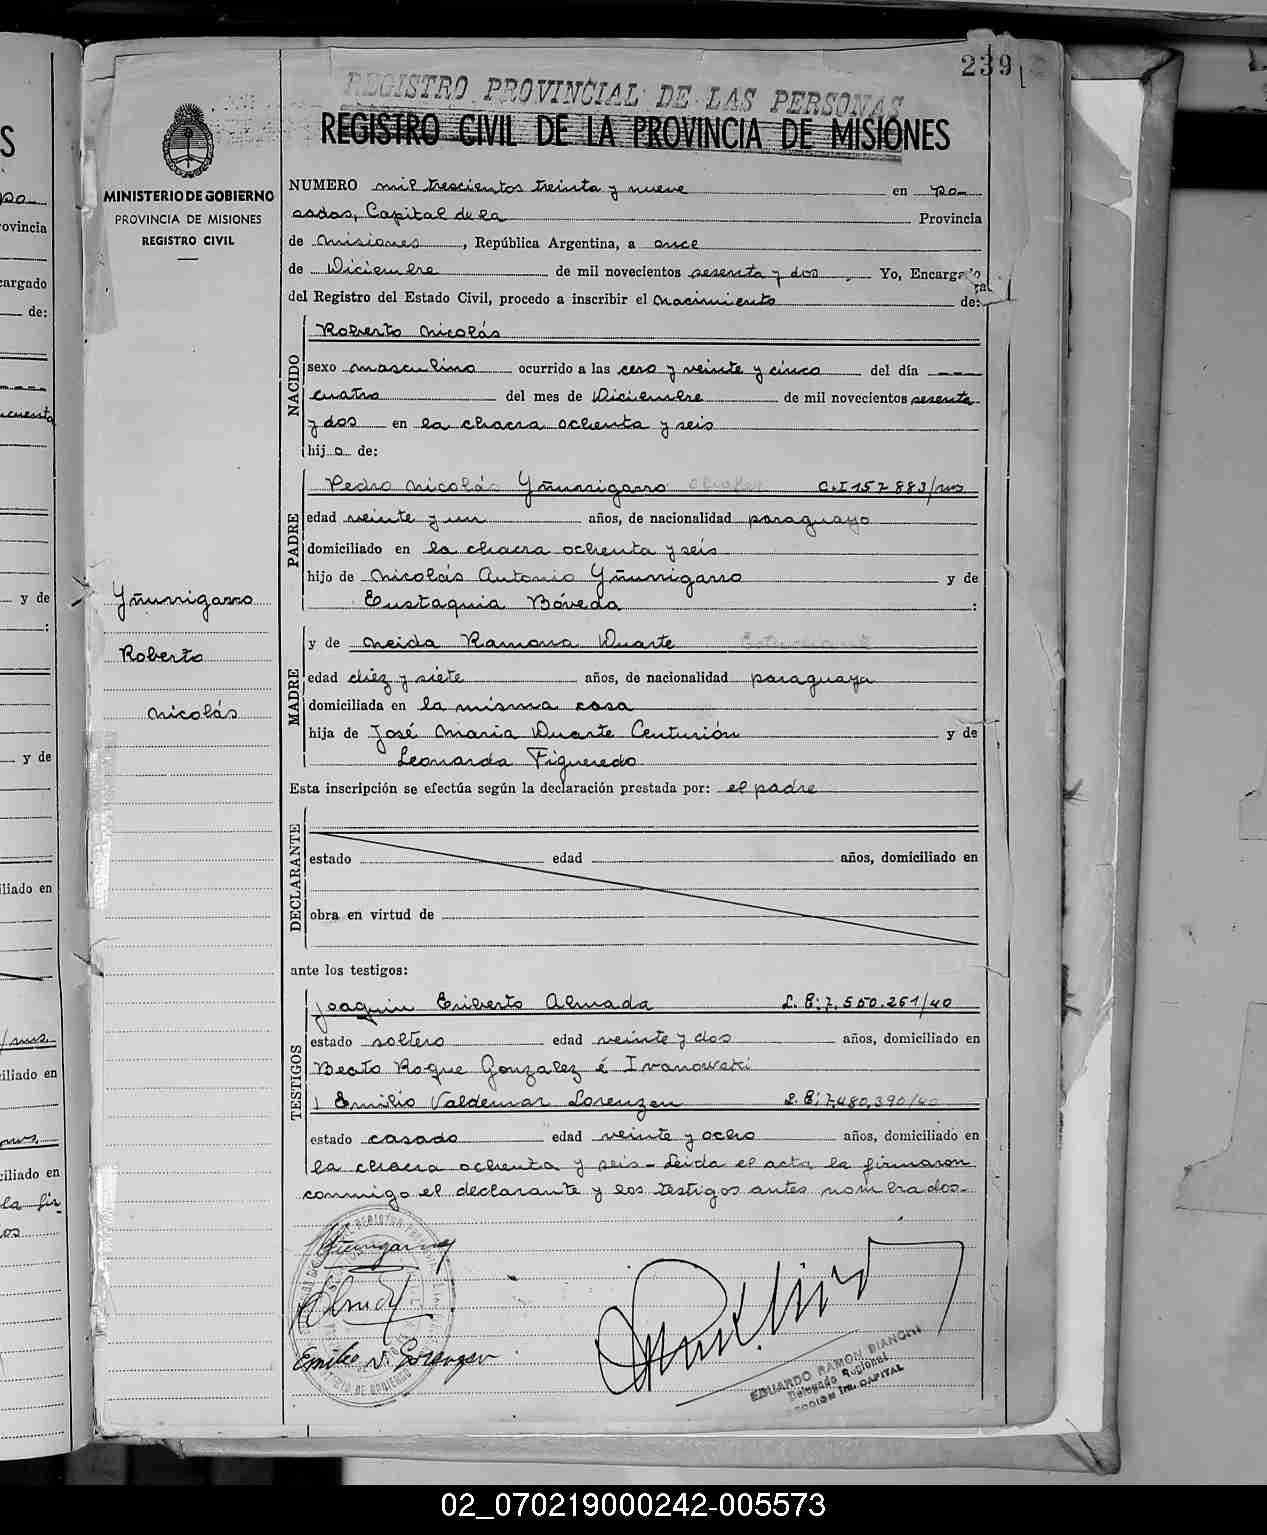 239
REGISTRO PROVINCIAL DE LAS PERSONAS
REGISTRO CIVIL DE LA PROVINCIA DE MISIONES
MINISTERIO DE GOBIERNO
PROVINCIA DE MISIONES
REGISTRO CIVIL
NUMERO mil trescientos treinta y nueve en Po-
sadas, Capital de la Provincia
de Misiones, República Argentina, a once
de Diciembre de mil novecientos sesenta y dos. Yo, Encargado
del Registro del Estado Civil, procedo a inscribir el nacimiento de:
NACIDO
Roberto Nicolás
sexo masculino ocurrido a las cero y veinte y cinco del día ---
cuatro del mes de Diciembre de mil novecientos sesenta
y dos en la chacra ochenta y seis
hijo de:
PADRE
Pedro Nicolás Yñurrigarro C.I 157883/ms
edad veinte y un años, de nacionalidad paraguayo
domiciliado en la chacra ochenta y seis
hijo de Nicolás Antonio Yñurrigarro y de
Eustaquia Bóveda :
Yñurrigarro
Roberto
Nicolás
MADRE
y de Neida Ramona Duarte Estudiante
edad diez y siete años, de nacionalidad paraguaya
domiciliada en la misma casa
hija de José Maria Duarte Centurión y de
Leonarda Figueredo
Esta inscripción se efectúa según la declaración prestada por: el padre
DECLARANTE
estado edad años, domiciliado en
obra en virtud de
ante los testigos:
TESTIGOS
Joaquin Eriberto Almada L.E: 7.550.261/40
estado soltero edad veinte y dos años, domiciliado en
Beato Roque Gonzalez é Ivanowski
Emilio Valdemar Lorenzen L.E: 7.480.390/40
estado casado edad veinte y ocho años, domiciliado en
la chacra ochenta y seis- Leida el acta la firmaron
conmigo el declarante y los testigos antes nombrados-
Emilio V. Lorenzen
EDUARDO RAMON BIANCHI
Delegado Regional
CAPITAL
02_070219000242-005573